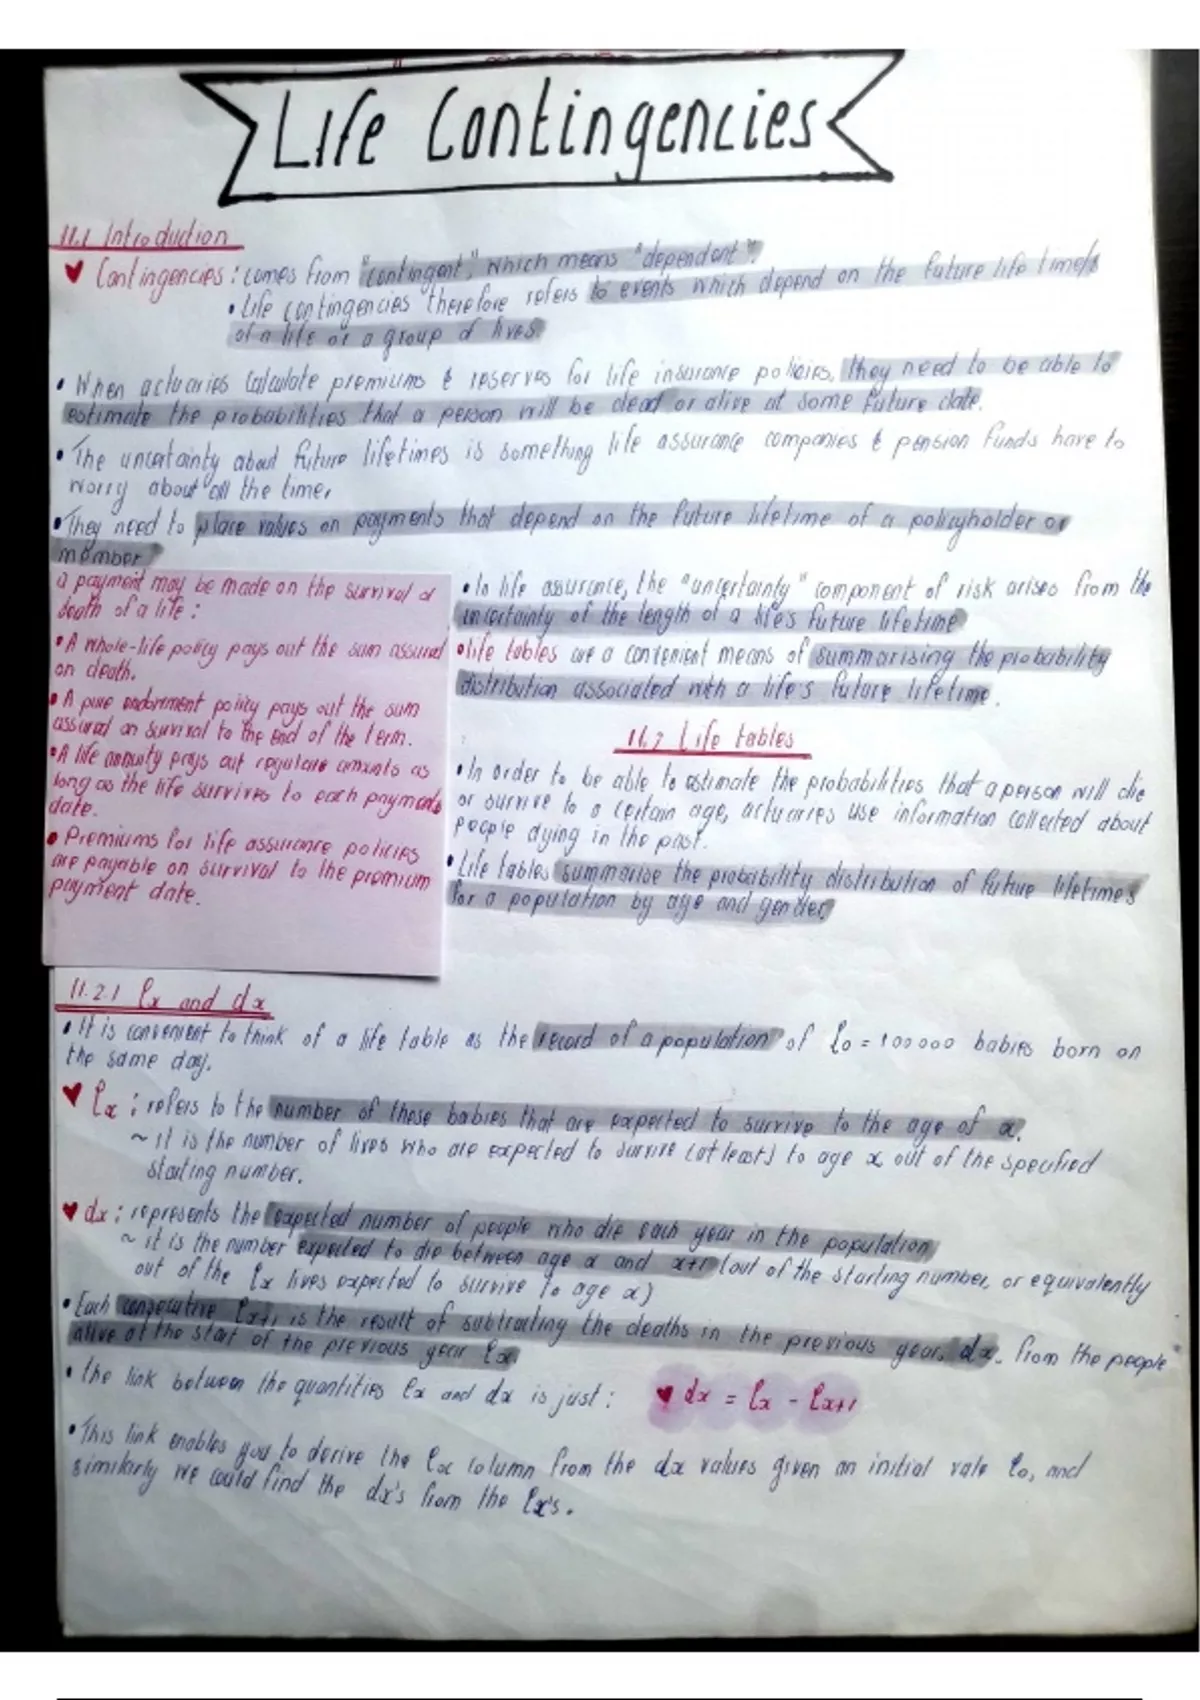 Life Contingencies
11.1 Introduction
♥ Contingencies: comes from "contingent," which means "dependent".
• Life contingencies therefore refers to events which depend on the future life time/s
of a life or a group of lives.
• When actuaries calculate premiums & reserves for life insurance policies, they need to be able to
estimate the probabilities that a person will be dead or alive at some future date.
• The uncertainty about future lifetimes is something life assurance companies & pension funds have to
worry about all the time.
• They need to place values on payments that depend on the future lifetime of a policyholder or
member
a payment may be made on the survival or
death of a life:
• A whole-life policy pays out the sum assured
on death.
• A pure endowment policy pays out the sum
assured on survival to the end of the term.
• A life annuity pays out regulare amounts as
long as the life survives to each payments
date.
• Premiums for life assurance policies
are payable on survival to the premium
payment date.
• In life assurance, the "uncertainty" component of risk arises from the
uncertainty of the length of a life's future lifetime
• life tables are a convenient means of summarising the probability
distribution associated with a life's future lifetime.
11.2 Life tables
• In order to be able to estimate the probabilities that a person will die
or survive to a certain age, actuaries use information collected about
people dying in the past.
• Life tables summarise the probability distribution of future lifetimes
for a population by age and gender.
11.2.1 lx and dx
• It is convenient to think of a life table as the record of a population of l0 = 100 000 babies born on
the same day.
♥ lx: refers to the number of these babies that are expected to survive to the age of x.
~ it is the number of lives who are expected to survive (at least) to age x out of the specified
starting number.
♥ dx: represents the expected number of people who die each year in the population
~ it is the number expected to die between age x and x+1 (out of the starting number, or equivalently
out of the lx lives expected to survive to age x)
• Each consecutive lx+1 is the result of subtracting the deaths in the previous year, dx, from the people
alive at the start of the previous year lx.
• the link between the quantities lx and dx is just: ♥ dx = lx - lx+1
• This link enables you to derive the lx column from the dx values given an initial vale l0, and
similarly we could find the dx's from the lx's.